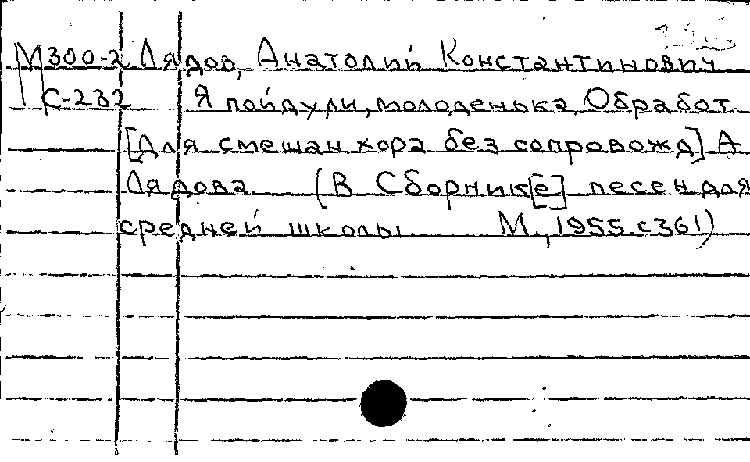 М300-2 Лядов, Анатолий Константинович
С-232 Я пойду ли, молоденька, Обработ.
[Для смешан хора без сопровожд] А
Лядова. (В Сборник[е] песен для
средней школы М., 1955. с361)